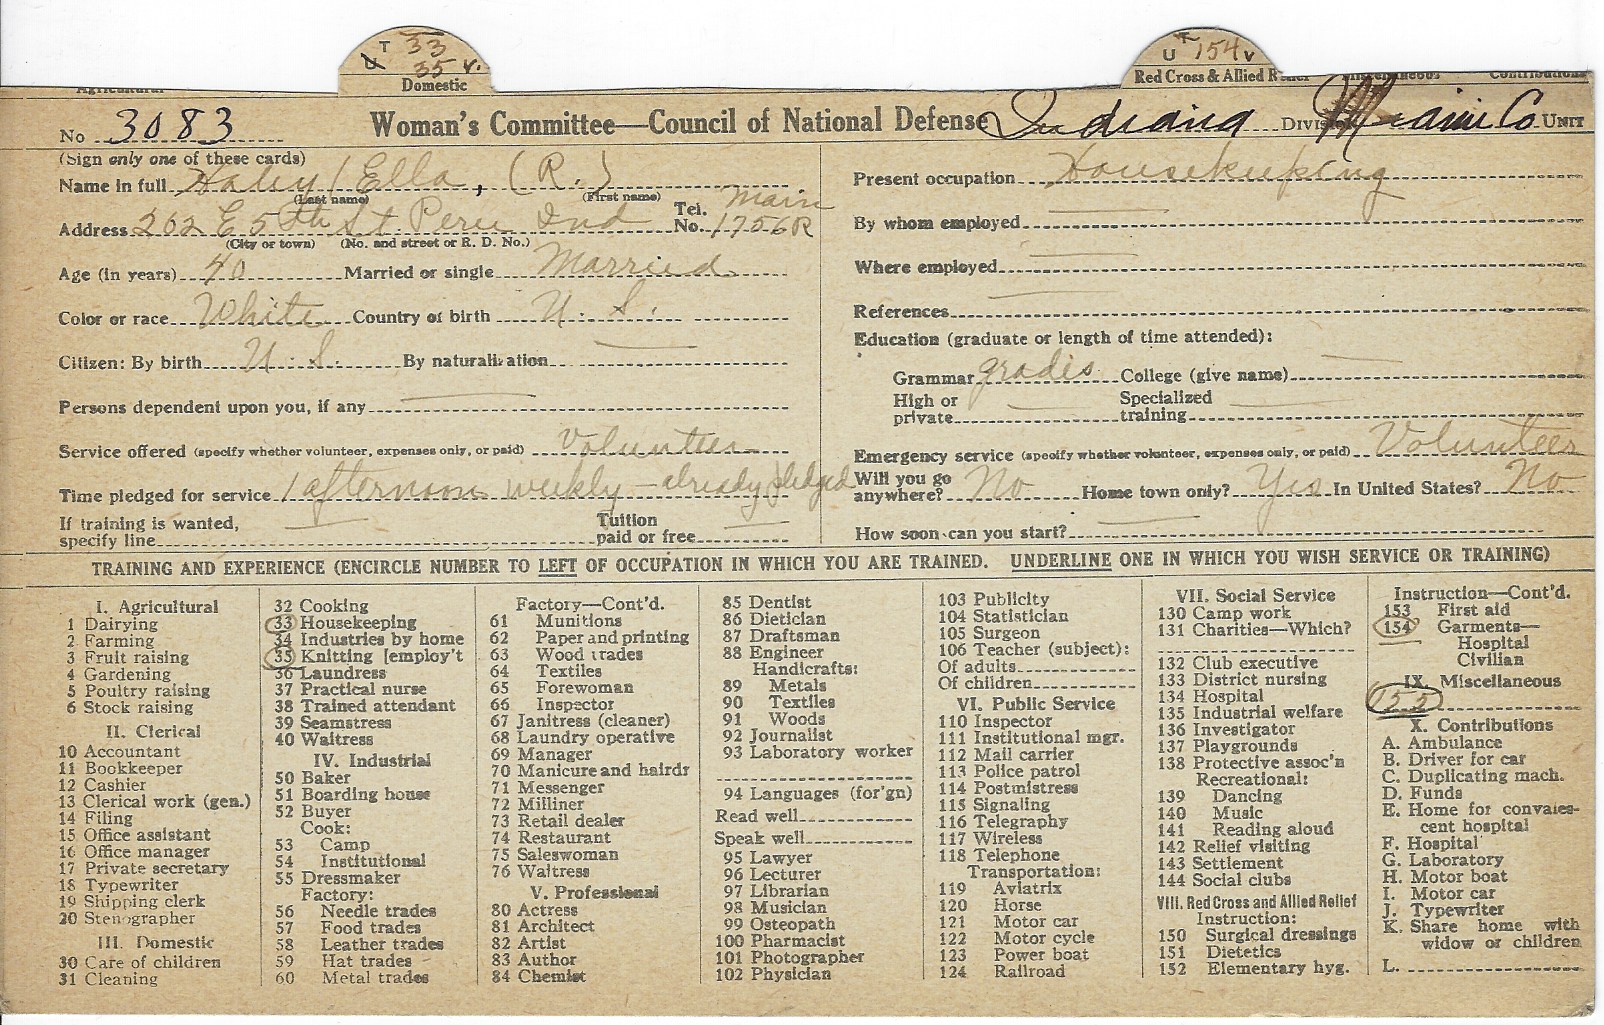 T 33
U 35 v.
Domestic
U T 154 v
Red Cross & Allied Relief
Miscellaneous
Contributions
Agricultural
No 3083 Woman's Committee—Council of National Defense Indiana DIVISION Miami Co UNIT
(Sign only one of these cards)
Name in full Haley / Ella, (R.)
(Last name) (First name)
Address 262 E 5th St. Peru Ind Tel. No. Main 1756R
(City or town) (No. and street or R. D. No.)
Age (in years) 40 Married or single Married
Color or race White Country of birth U. S.
Citizen: By birth U. S. By naturalization
Persons dependent upon you, if any
Service offered (specify whether volunteer, expenses only, or paid) Volunteer
Time pledged for service 1 afternoon weekly – already pledged
If training is wanted, specify line Tuition paid or free
Present occupation Housekeeping
By whom employed
Where employed
References
Education (graduate or length of time attended):
Grammar grades College (give name)
High or private Specialized training
Emergency service (specify whether volunteer, expenses only, or paid) Volunteer
Will you go anywhere? No Home town only? Yes In United States? No
How soon can you start?
TRAINING AND EXPERIENCE (ENCIRCLE NUMBER TO LEFT OF OCCUPATION IN WHICH YOU ARE TRAINED. UNDERLINE ONE IN WHICH YOU WISH SERVICE OR TRAINING)
I. Agricultural
1 Dairying
2 Farming
3 Fruit raising
4 Gardening
5 Poultry raising
6 Stock raising
II. Clerical
10 Accountant
11 Bookkeeper
12 Cashier
13 Clerical work (gen.)
14 Filing
15 Office assistant
16 Office manager
17 Private secretary
18 Typewriter
19 Shipping clerk
20 Stenographer
III. Domestic
30 Care of children
31 Cleaning
32 Cooking
33 Housekeeping
34 Industries by home
35 Knitting [employ't
36 Laundress
37 Practical nurse
38 Trained attendant
39 Seamstress
40 Waitress
IV. Industrial
50 Baker
51 Boarding house
52 Buyer
Cook:
53 Camp
54 Institutional
55 Dressmaker
Factory:
56 Needle trades
57 Food trades
58 Leather trades
59 Hat trades
60 Metal trades
Factory—Cont'd.
61 Munitions
62 Paper and printing
63 Wood trades
64 Textiles
65 Forewoman
66 Inspector
67 Janitress (cleaner)
68 Laundry operative
69 Manager
70 Manicure and hairdr
71 Messenger
72 Milliner
73 Retail dealer
74 Restaurant
75 Saleswoman
76 Waitress
V. Professional
80 Actress
81 Architect
82 Artist
83 Author
84 Chemist
85 Dentist
86 Dietician
87 Draftsman
88 Engineer
Handicrafts:
89 Metals
90 Textiles
91 Woods
92 Journalist
93 Laboratory worker
94 Languages (for'gn)
Read well
Speak well
95 Lawyer
96 Lecturer
97 Librarian
98 Musician
99 Osteopath
100 Pharmacist
101 Photographer
102 Physician
103 Publicity
104 Statistician
105 Surgeon
106 Teacher (subject):
Of adults
Of children
VI. Public Service
110 Inspector
111 Institutional mgr.
112 Mail carrier
113 Police patrol
114 Postmistress
115 Signaling
116 Telegraphy
117 Wireless
118 Telephone
Transportation:
119 Aviatrix
120 Horse
121 Motor car
122 Motor cycle
123 Power boat
124 Railroad
VII. Social Service
130 Camp work
131 Charities—Which?
132 Club executive
133 District nursing
134 Hospital
135 Industrial welfare
136 Investigator
137 Playgrounds
138 Protective assoc'n
Recreational:
139 Dancing
140 Music
141 Reading aloud
142 Relief visiting
143 Settlement
144 Social clubs
VIII. Red Cross and Allied Relief
Instruction:
150 Surgical dressings
151 Dietetics
152 Elementary hyg.
Instruction—Cont'd.
153 First aid
154 Garments—
Hospital
Civilian
IX. Miscellaneous
155
X. Contributions
A. Ambulance
B. Driver for car
C. Duplicating mach.
D. Funds
E. Home for convales-
cent hospital
F. Hospital
G. Laboratory
H. Motor boat
I. Motor car
J. Typewriter
K. Share home with
widow or children
L.